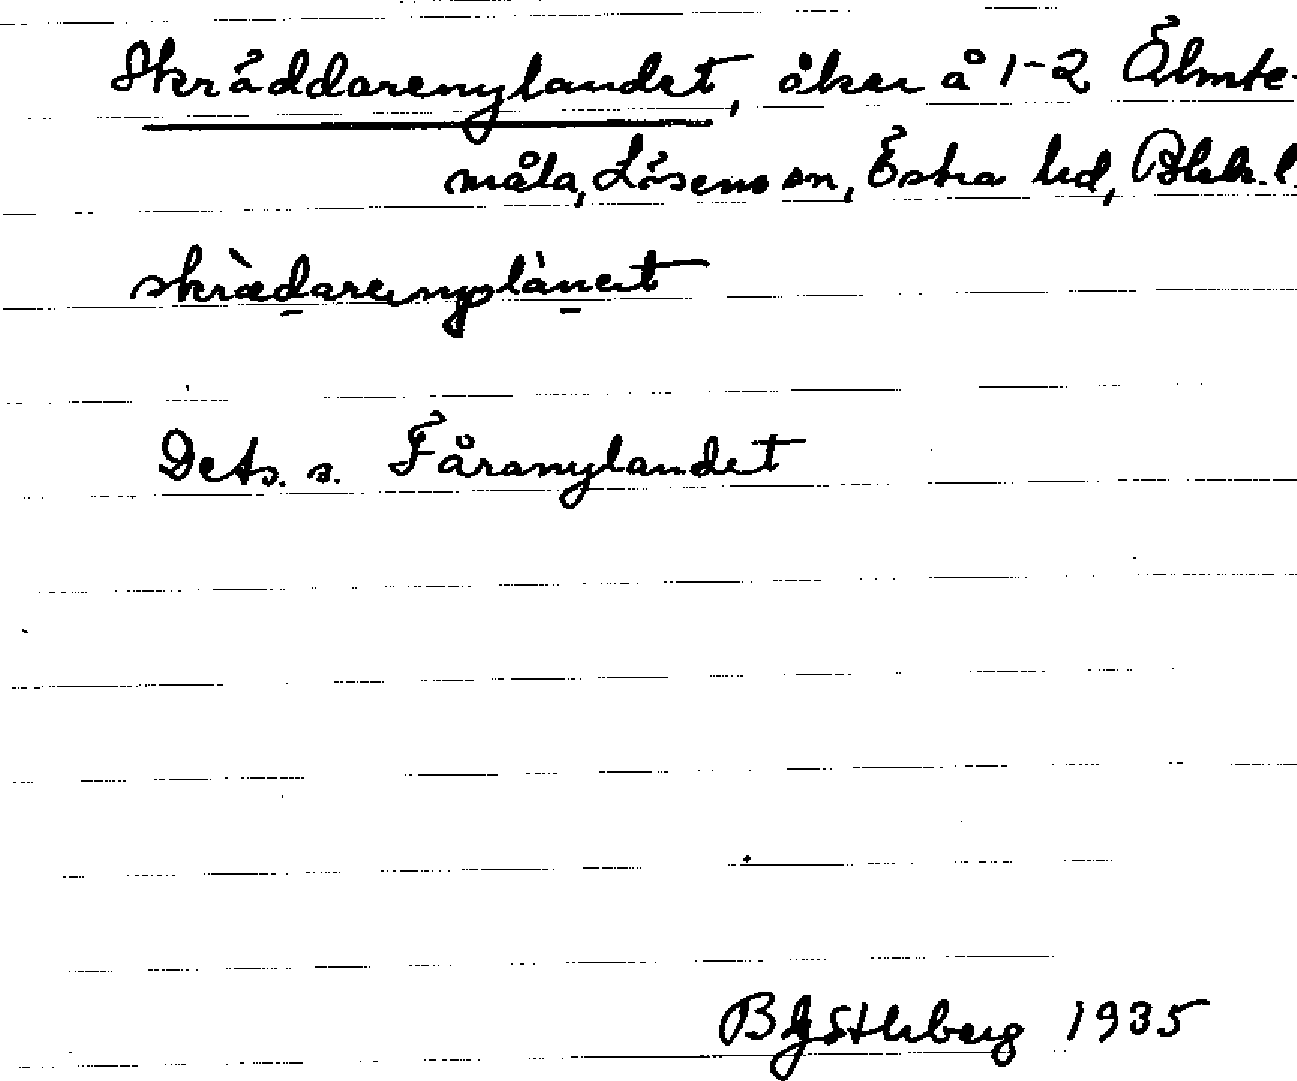 Skräddarenylandet, åker å 1-2 Älmte-
måla, Lösens sn, Östra hd, Blek. l.
skrædarenylànet
Dets. s. Fåranylandet
1935